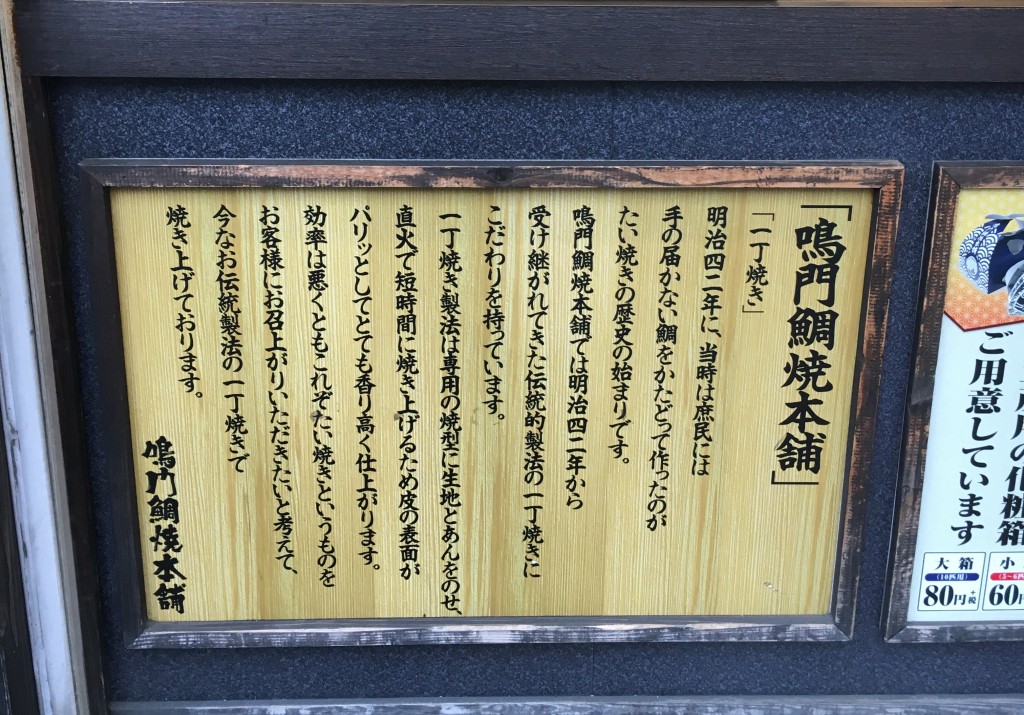 「鳴門鯛焼本舗」
「一丁焼き」
明治四二年に、当時は庶民には
手の届かない鯛をかたどって作ったのが
たい焼きの歴史の始まりです。
鳴門鯛焼本舗では明治四二年から
受け継がれてきた伝統的製法の一丁焼きに
こだわりを持っています。
一丁焼き製法は専用の焼型に生地とあんをのせ、
直火で短時間に焼き上げるため皮の表面が
パリッとしてとても香り高く仕上がります。
効率は悪くともこれぞたい焼きというものを
お客様にお召上がりいただきたいと考えて、
今なお伝統製法の一丁焼きで
焼き上げております。
鳴門鯛焼本舗
用の化粧箱
ご用意しています
大箱
(10匹用)
80円+税
小
60円